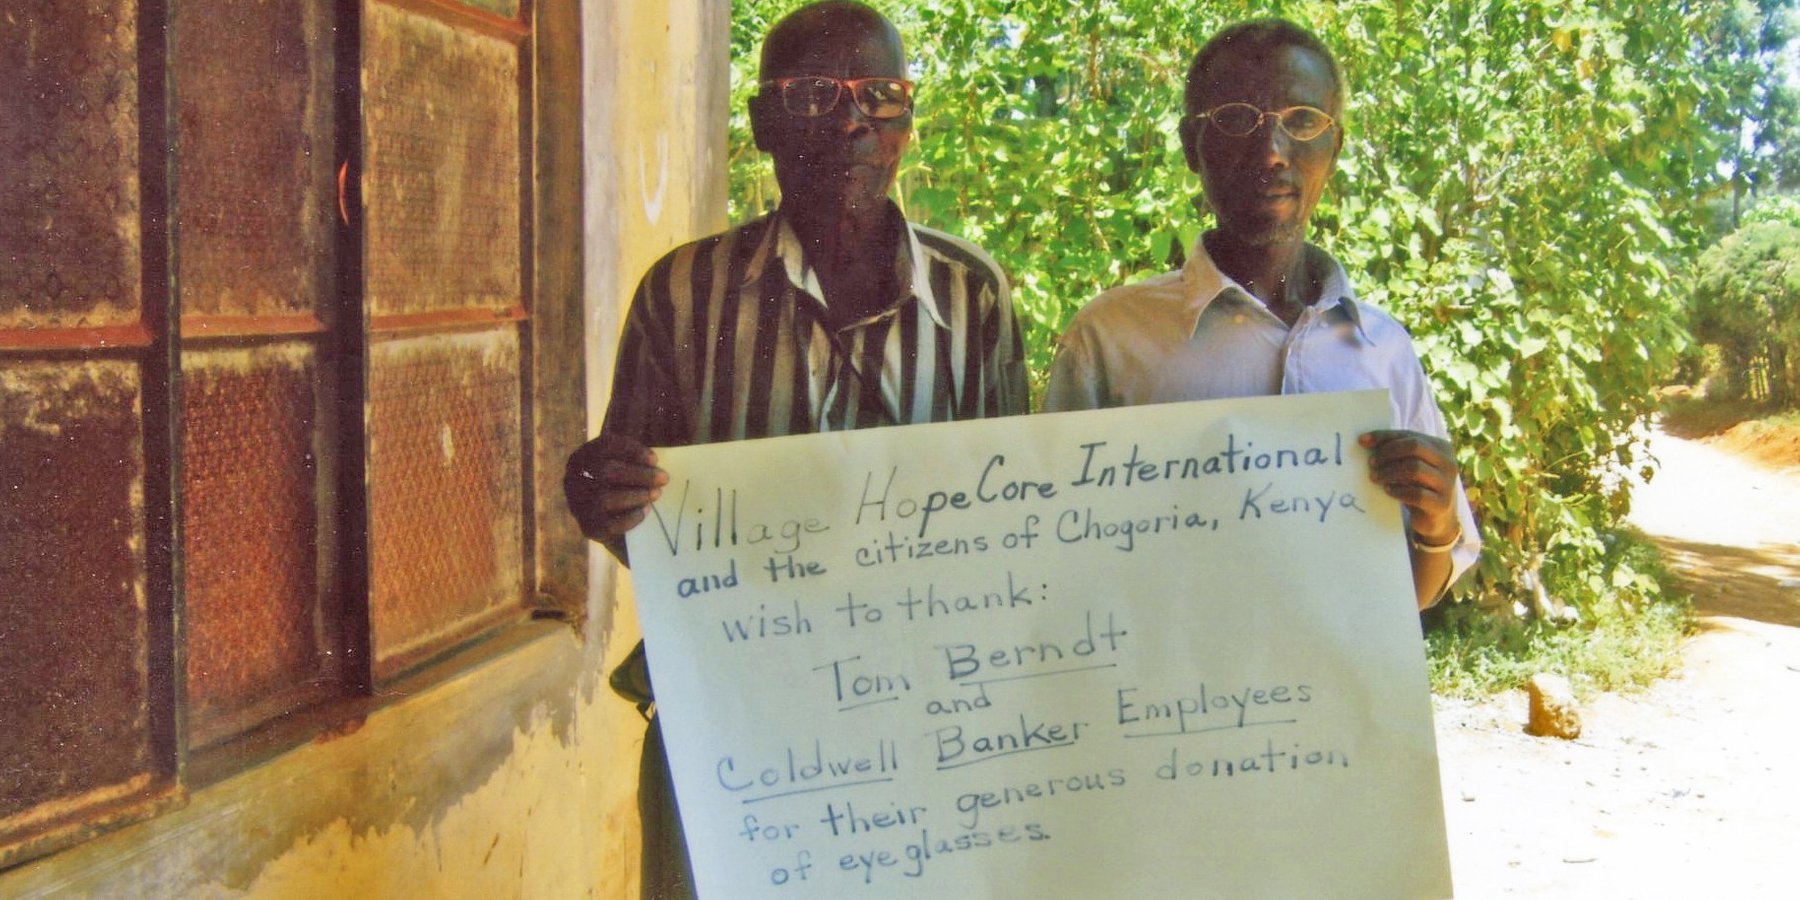 Village HopeCore International
and the citizens of Chogoria, Kenya
wish to thank:
Tom Berndt
and
Coldwell Banker Employees
for their generous donation
of eyeglasses.